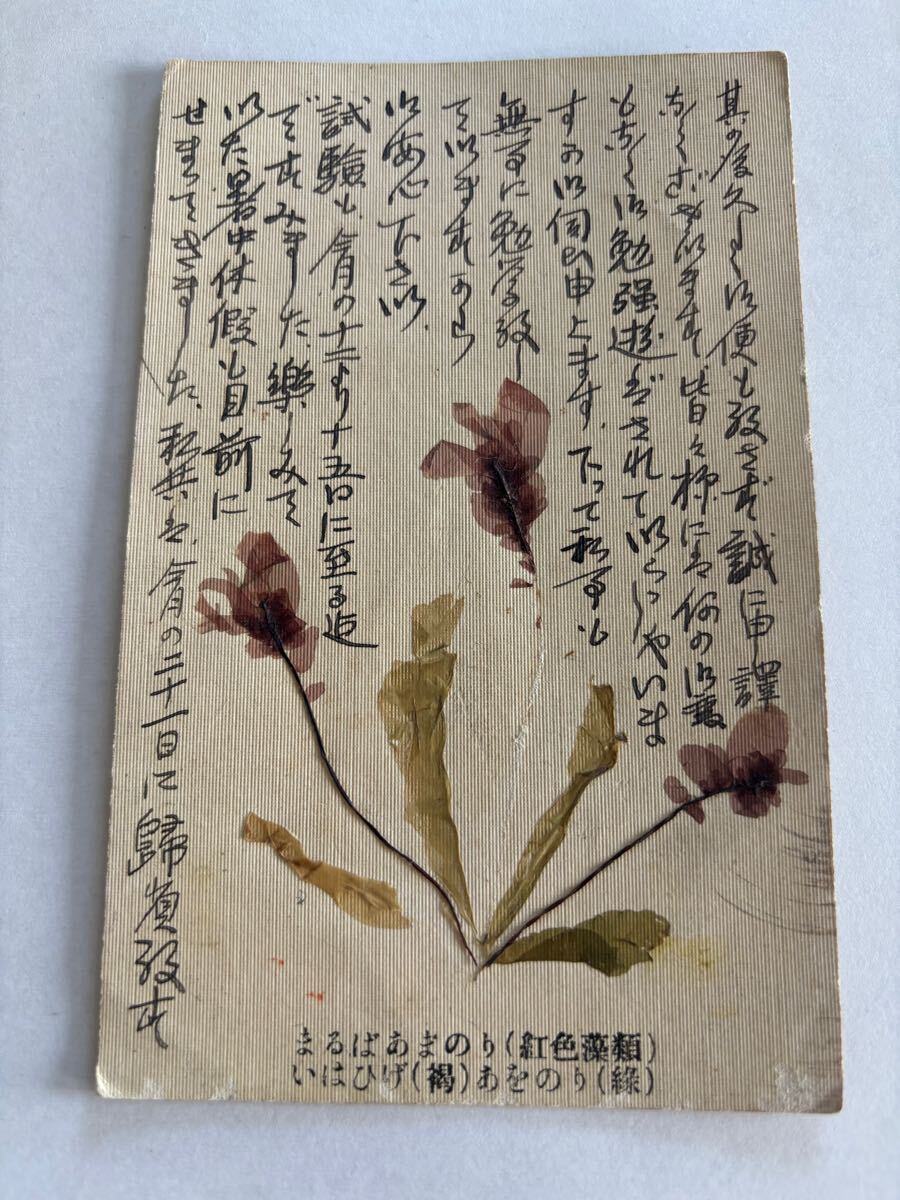 其の后久しく御便も致さず誠に申譯
なくござ以ます、皆々様には何の御変
もなく御勉強遊ばされて以らっしやいま
すか御伺ひ申上ます。下って私事も
無事に勉学致し
て以ますから
御安心下さ以、
試験も、今月の十二より十五日に至る迄
ですみました、樂しみて
以た暑中休假も目前に
せまってきました、私共は、今月の二十一日に歸省致す
まるばあまのり(紅色藻類)
いはひげ(褐)あをのり(綠)